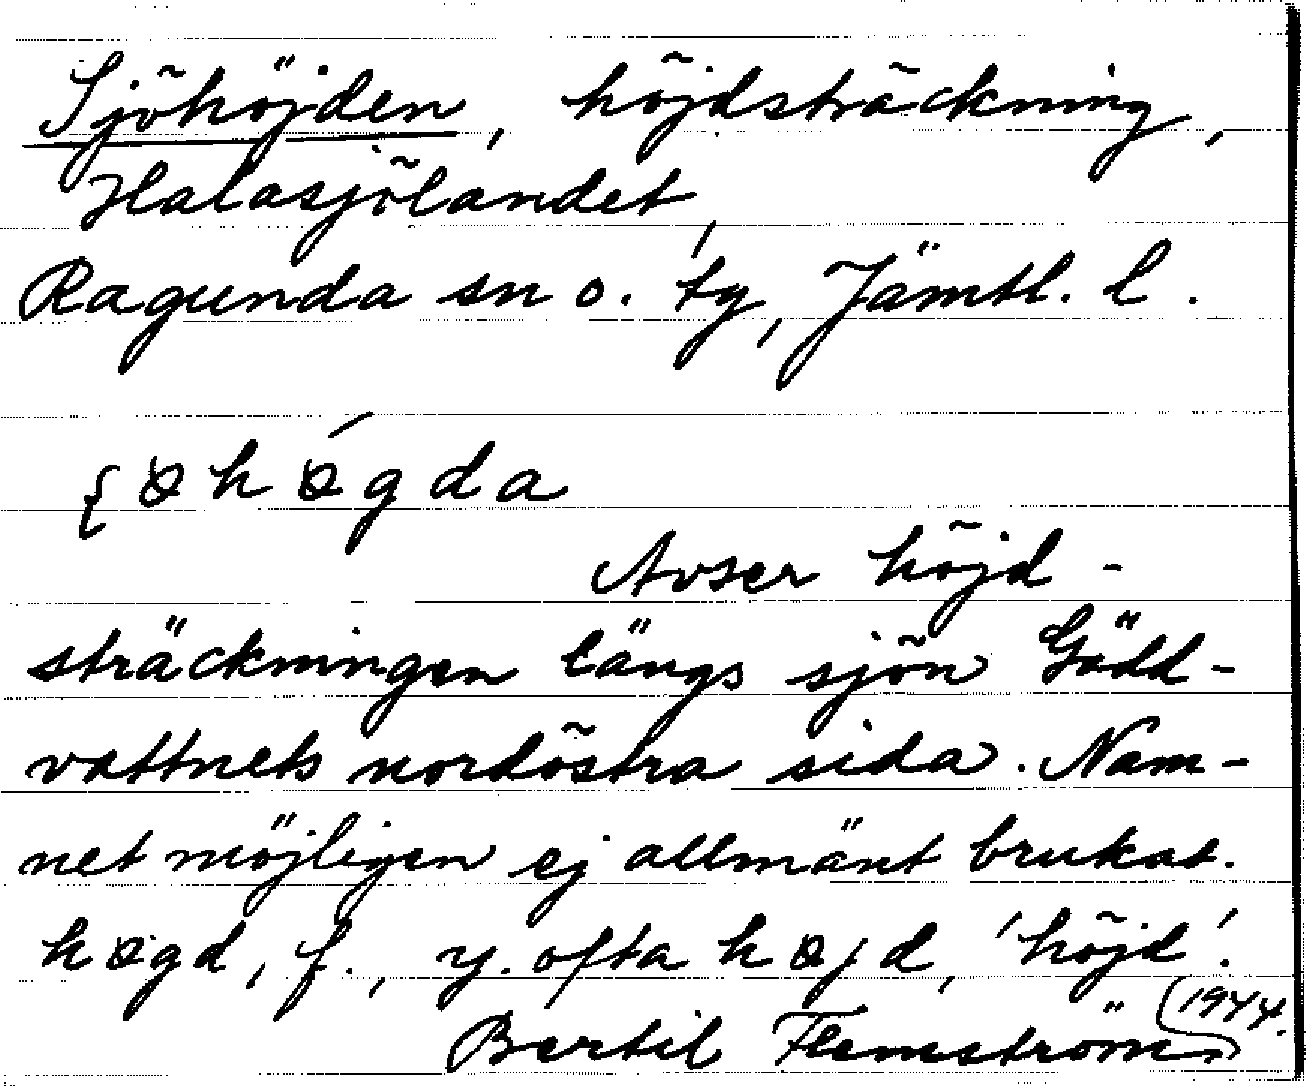 Sjöhöjden, höjdsträckning,
Halasjölandet,
Ragunda sn o. tg, Jämtl. l.
ʃøhǿgda
Avser höjd-
sträckningen längs sjön Gödd-
vattnets nordöstra sida. Nam-
net möjligen ej allmänt brukat.
høgd, f., y. ofta højd, 'höjd'.
Bertil Flemström 1944.